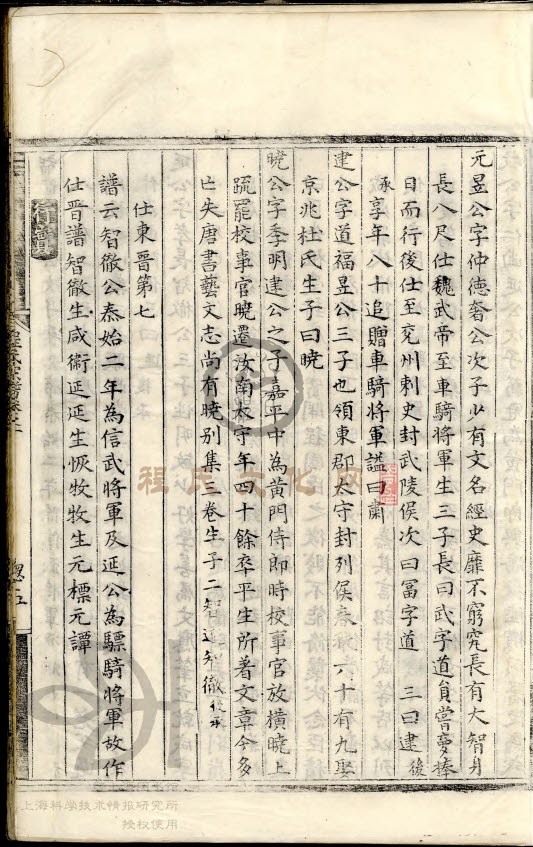 元昱公字仲德奢公次子少有文名經史靡不窮究長有大智身
長八尺仕魏武帝至車騎將軍生三子長曰武字道貟嘗夢捧
日而行後仕至兗州刺史封武陵侯次曰冨字道 三曰建後
承享年八十追贈車騎將軍諡曰肅
建公字道福昱公三子也領東郡太守封列侯 六十有九娶
京兆杜氏生子曰曉
曉公字季明建公之子嘉平中為黃門侍郎時校事官放橫曉上
䟽罷校事官曉遷汝南太守年四十餘卒平生所著文章今多
亡失唐書藝文志尚有曉別集三卷生子二智延智徹後承
仕東晉第七
譜云智徹公泰始二年為信武將軍及延公為驃騎將軍故作
仕晋譜智徹生咸術延延生恢牧牧生元標元譚
程氏文化
上海科學技术情报研究所
授权使用